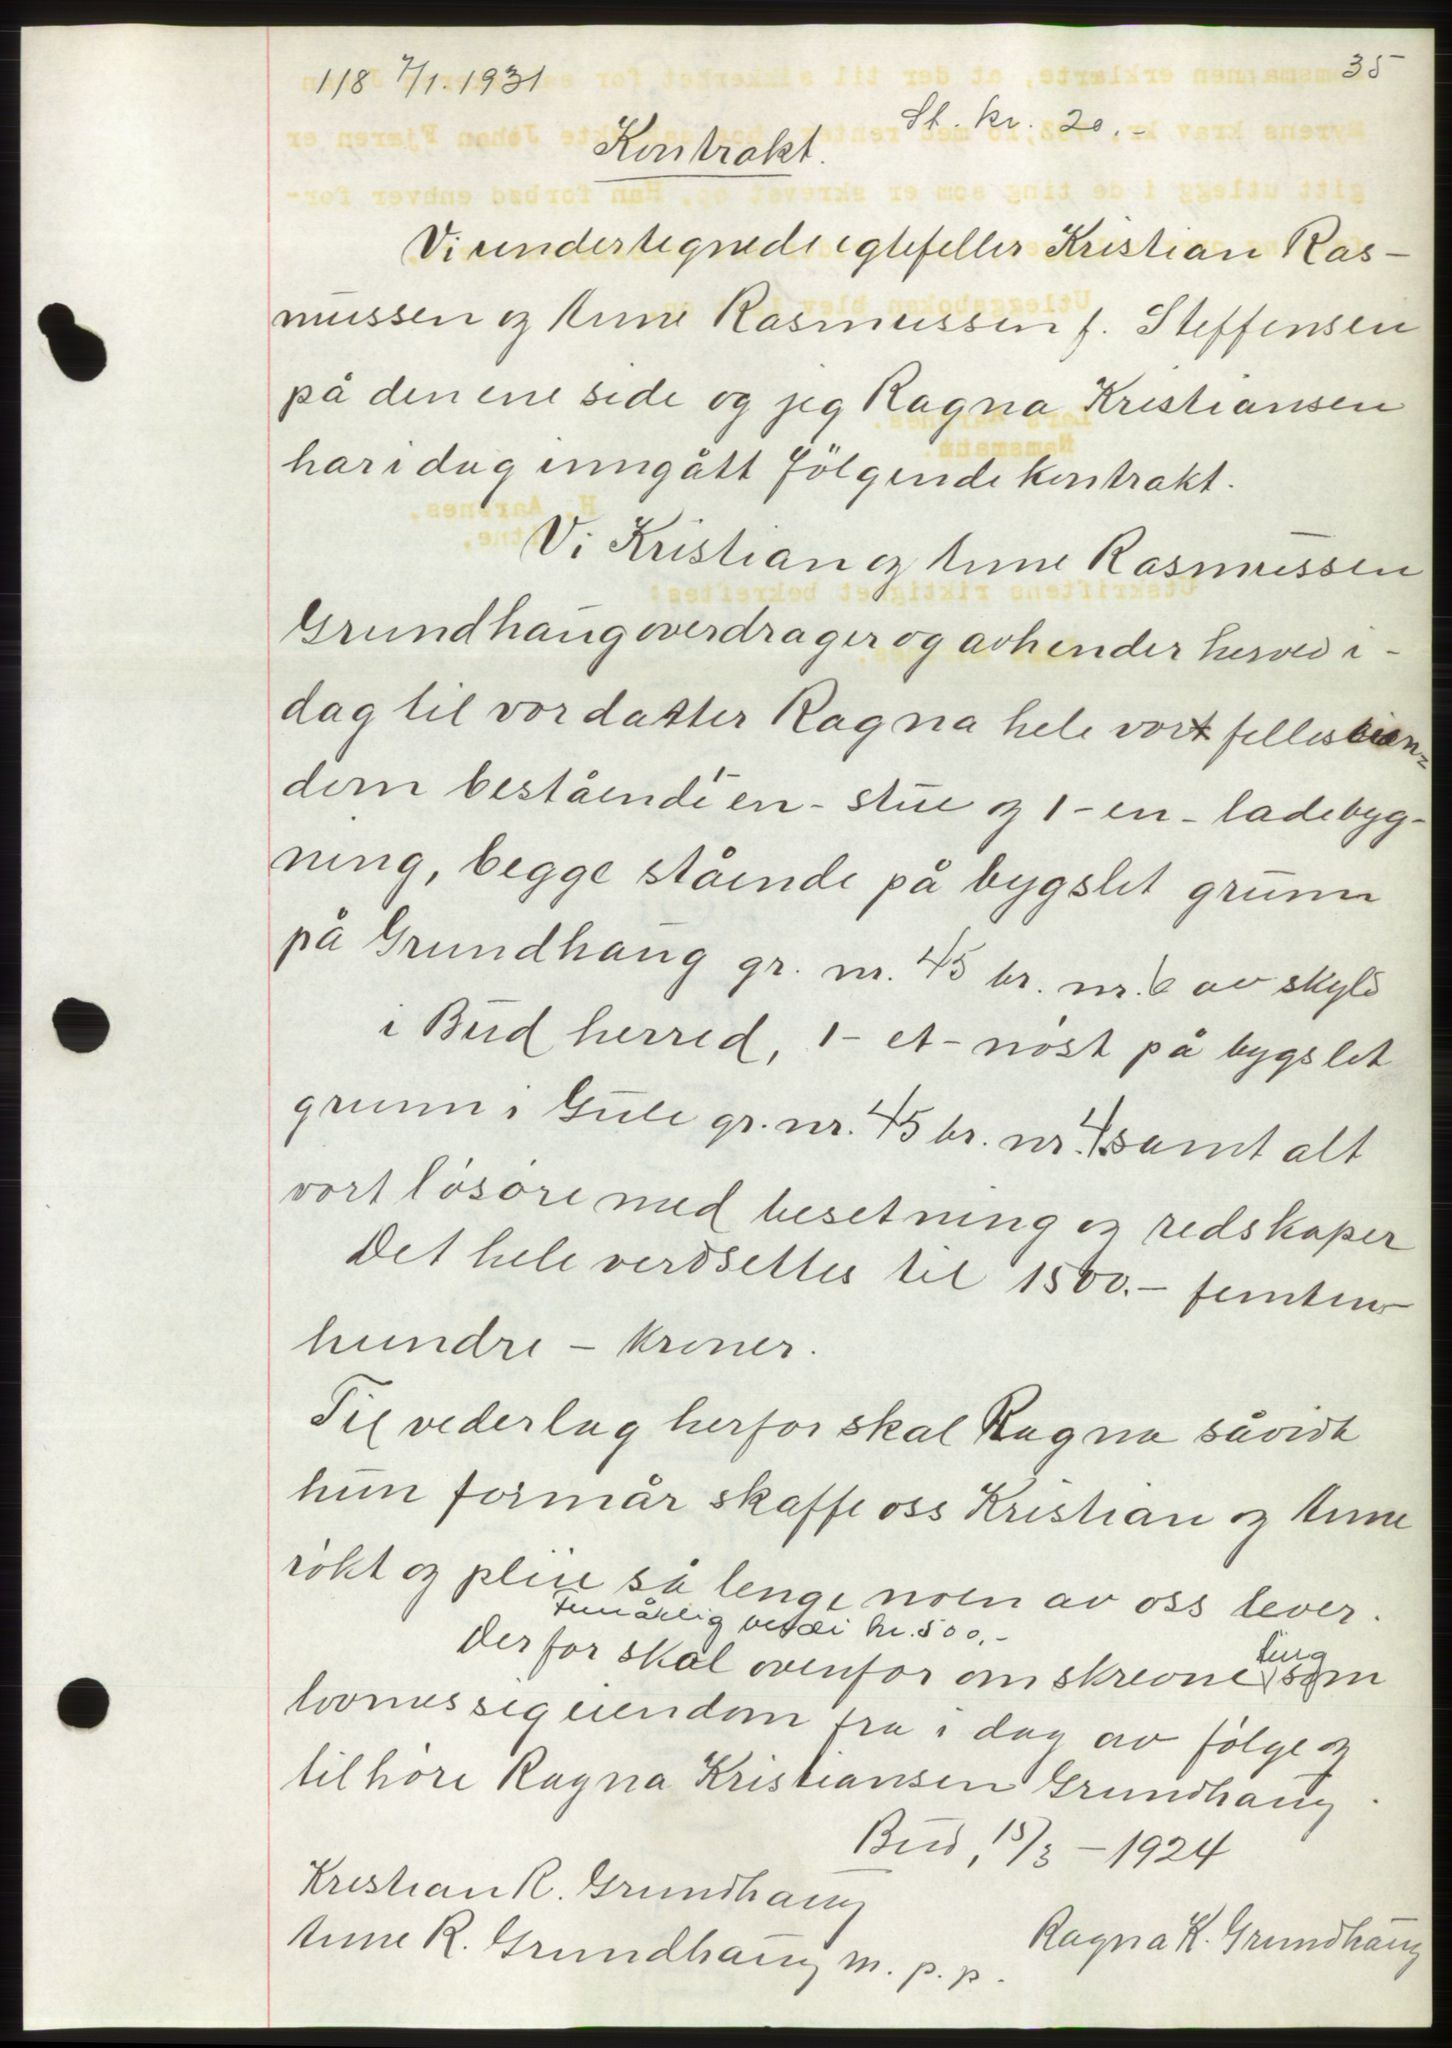 118 7/1. 1931
35
St. kr. 20.-
Kontrakt.
Vi undertegnede egtefeller Kristian Ras-
mussen og Anne Rasmussen f. Steffensen
på den ene side og jeg Ragna Kristiansen
har idag inngått følgende kontrakt.
Vi Kristian og Anne Rasmussen
Grundhaug overdrager og avhender herved i-
dag til vor datter Ragna hele vort felles eien-
dom bestående i en - stue og 1 - en - ladebyg-
ning, begge stående på bygslet grunn
på Grundhaug gr. nr. 45 br. nr. 6 av skyld
i Bud herred, 1 - et - nöst på bygslet
grunn i Gule gr. nr. 45 br. nr. 4. samt alt
vort lösöre med besetning og redskaper
Det hele verdsettes til 1500.- femten-
hundre - kroner.
Til vederlag herfor skal Ragna såvidt
hun formår skaffe oss Kristian og Anne
rökt og pleie så lenge noen av oss lever.
Femårlig verdi kr. 500.-
Derfor skal ovenfor omskrevne ting som
lovmessig eiendom fra i dag av følge og
tilhöre Ragna Kristiansen Grundhaug.
Bud, 15/3 - 1924
Kristian R. Grundhaug
Anne R. Grundhaug m. p. p.
Ragna K. Grundhaug